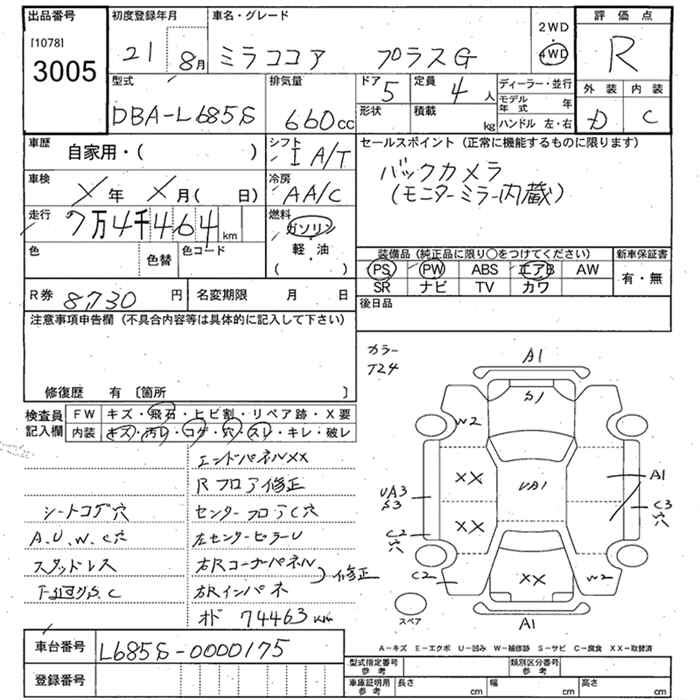 出品番号
[1078]
3005
初度登録年月
21 8月
車名・グレード
ミラココア プラスG
2WD
・
4WD
評価点
R
型式
DBA-L685S
排気量
660cc
ドア 5
定員 4人
形状
積載 kg
ディーラー・並行
モデル年式 年
ハンドル 左・右
外装 内装
D C
車歴
自家用・( )
シフト
I A/T
セールスポイント (正常に機能するものに限ります)
バックカメラ
(モニターミラー内蔵)
車検
X年 X月( 日)
冷房
AA/C
走行
7万4千464km
燃料
ガソリン
・
軽・油
・
( )
色
色替
色コード
装備品 (純正品に限り○をつけてください)
PS PW ABS エアB AW
SR ナビ TV カワ
新車保証書
有・無
R券 8,730円
名変期限 月 日
後日品
注意事項申告欄 (不具合内容等は具体的に記入して下さい)
修復歴 有 〔箇所 〕
検査員記入欄
FW キズ・飛石・ヒビ割・リペア跡・X要
内装 キズ・汚レ・コゲ・穴・スレ・キレ・破レ
エンドパネルXX
Rフロア修正
シートコゲ穴
センターフロアC穴
A.U.W.C穴
左センターピラーU
スタッドレス
右Rコーナーパネル
右Rインパネ
修正
下廻りS.C
オド 74463km
カラー
T24
A1
S1
W2
XX
XX
UA1
UA3
S3
C2
穴
A1
C3
穴
C2
XX
W2
A1
スペア
A-キズ E-エクボ U-凹み W-補修跡 S-サビ C-腐食 XX-取替済
車台番号
L685S-0000175
登録番号
型式指定番号
参考
類別区分番号
参考
車庫証明用
参考
長さ cm
幅 cm
高さ cm